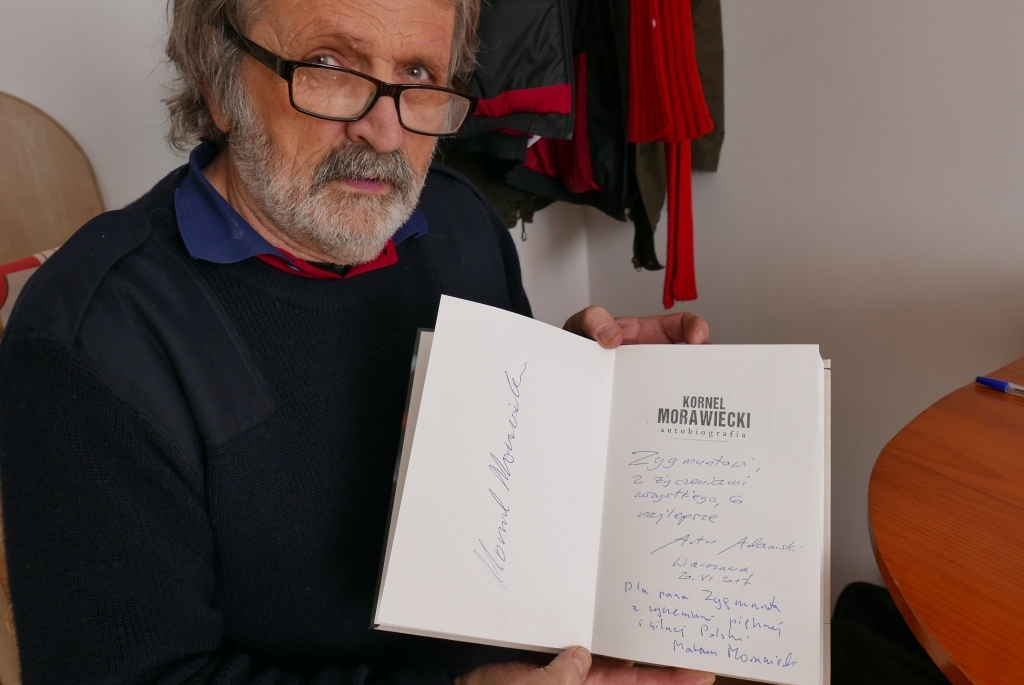 Kornel Morawiecki
KORNEL
MORAWIECKI
autobiografia
Zygmuntowi,
z życzeniami
wszystkiego, co
najlepsze.
Artur Adamski
Warszawa,
20. VI 2017
Dla pana Zygmunta
z życzeniami pięknej
i silnej Polski
Mateusz Morawiecki